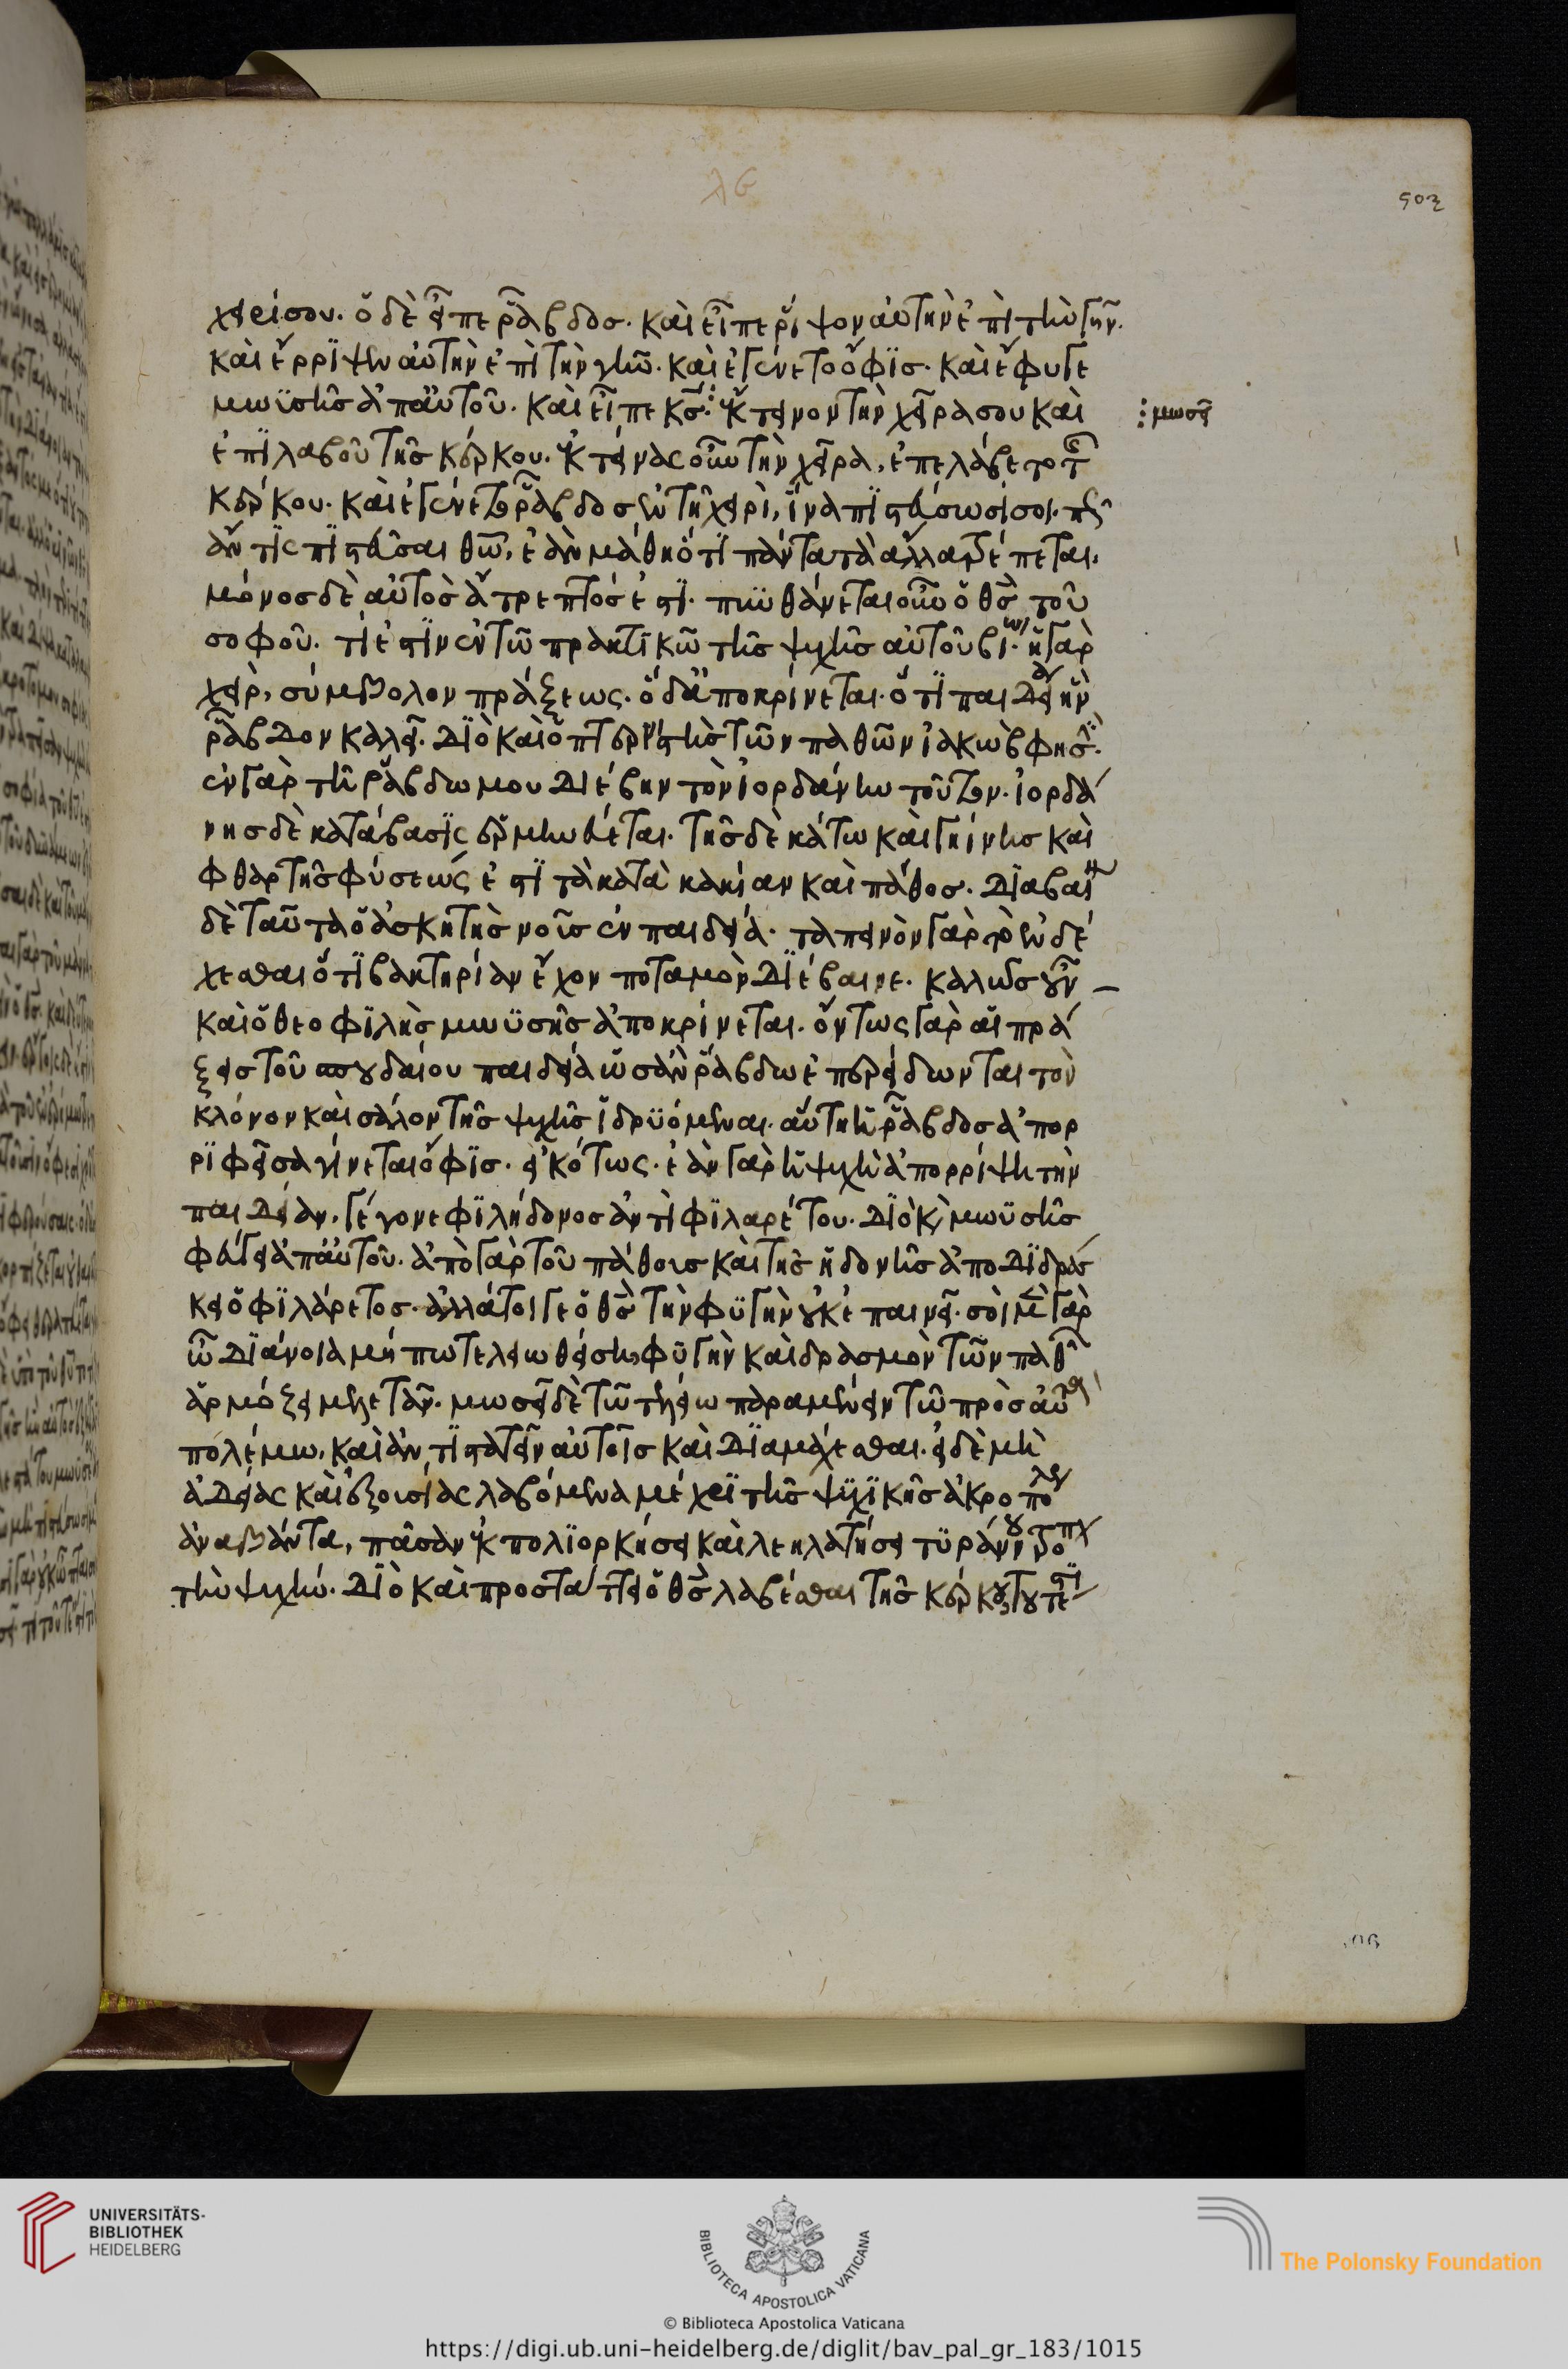 λε
502
χειρί σου. ὁ δὲ εἶπε ῥάβδος. καὶ εἶπε ῥίψον αὐτὴν ἐπὶ τὴν γῆν.
καὶ ἔρριψεν αὐτὴν ἐπὶ τὴν γῆν. καὶ ἐγένετο ὄφις. καὶ ἔφυγε
μωϋσῆς ἀπ' αὐτοῦ. καὶ εἶπε κς̅ ⁝ ἔκτεινον τὴν χεῖρα σου καὶ
⁝ μωσεῖ
ἐπιλαβοῦ τῆς κέρκου. ἐκτείνας οὖν τὴν χεῖρα, ἐπελάβετο τῆς
κέρκου. καὶ ἐγένετο ῥάβδος ἐν τῆ χειρὶ, ἵνα πιστεύσωσί σοι. πῶς
ἄν τις πιστεύσαι θῶ, ἐὰν μάθη ὅτι πάντα τὰ ἄλλα τρέπεται.
μόνος δὲ αὐτὸς ἄτρεπτός ἐστι. πυνθάνεται οὖν ὁ θς̅ τοῦ
σοφοῦ. τί ἐστιν ἐν τῶ πρακτικῶ τῆς ψυχῆς αὐτοῦ βίω. ἡ γὰρ
χεὶρ, σύμβολον πράξεως. ὁ δ' ἀποκρίνεται. ὅτι παιδεία ἣν
ῥάβδον καλεῖ. διὸ καὶ ὁ πτερνιστὴς τῶν παθῶν ἰακὼβ φησὶ.
ἐν γὰρ τῆ ῥάβδω μου διέβην τὸν ἰορδάνην τοῦτον. ἰορδά
νης δὲ κατάβασις ἑρμηνεύεται. τῆς δὲ κάτω καὶ γηίνης καὶ
φθαρτῆς φύσεως ἐστὶ τὰ κατὰ κακίαν καὶ πάθος. διαβαίνει
δὲ ταῦτα ὁ ἀσκητὴς νοῦς ἐν παιδεία. ταπεινὸν γὰρ τὸ ἐνδέ
χεσθαι ὅτι βακτηρίαν ἔχων ποταμὸν διέβαινε. καλῶς οὖν
καὶ ὁ θεοφιλὴς μωϋσῆς ἀποκρίνεται. ὄντως γὰρ αἱ πρά
ξεις τοῦ σπουδαίου παιδεία ὡσὰν ῥάβδω ἐπερείδωνται τὸν
κλόνον καὶ σάλον τῆς ψυχῆς ἱδρυόμεναι. αὕτη ἡ ῥάβδος ἀπορ
ριφεῖσα γίνεται ὄφις. εἰκότως. ἐὰν γὰρ ἡ ψυχὴ ἀπορρίψη τὴν
παιδείαν, γέγονε φιλήδονος ἀντὶ φιλαρέτου. διὸ καὶ μωϋσῆς
φεύγει ἀπ' αὐτοῦ. ἀπὸ γὰρ τοῦ πάθους καὶ τῆς ἡδονῆς ἀποδιδράς
κει ὁ φιλάρετος. ἀλλά τοι γε ὁ θς̅ τὴν φυγὴν οὐκ ἐπαινεῖ. σοὶ μὲν γὰρ
ὦ διάνοια μήπω τελειωθείση, φυγὴν καὶ δρασμὸν τῶν παθῶν
ἁρμόζει μελετᾶν. μωσεῖ δὲ τῶ τελείω παραμένειν τῶ πρὸς αὐτὰ
πολέμω, καὶ ἀντιστατεῖν αὐτοῖς καὶ διαμάχεσθαι. εἰ δὲ μὴ
ἀδείας καὶ ἐξουσίας λαβόμενα μέχρι τῆς ψυχικῆς ἀκροπόλεως
ἀναβάντα, πᾶσαν ἐκπολιορκήσει καὶ λεηλατήσει τυράννου τρόπον
τὴν ψυχήν. διὸ καὶ προστάττει ὁ θς̅ λαβέσθαι τῆς κέρκου, τουτέστι
UNIVERSITÄTS-
BIBLIOTHEK
HEIDELBERG
BIBLIOTECA APOSTOLICA VATICANA
The Polonsky Foundation
© Biblioteca Apostolica Vaticana
https://digi.ub.uni-heidelberg.de/diglit/bav_pal_gr_183/1015